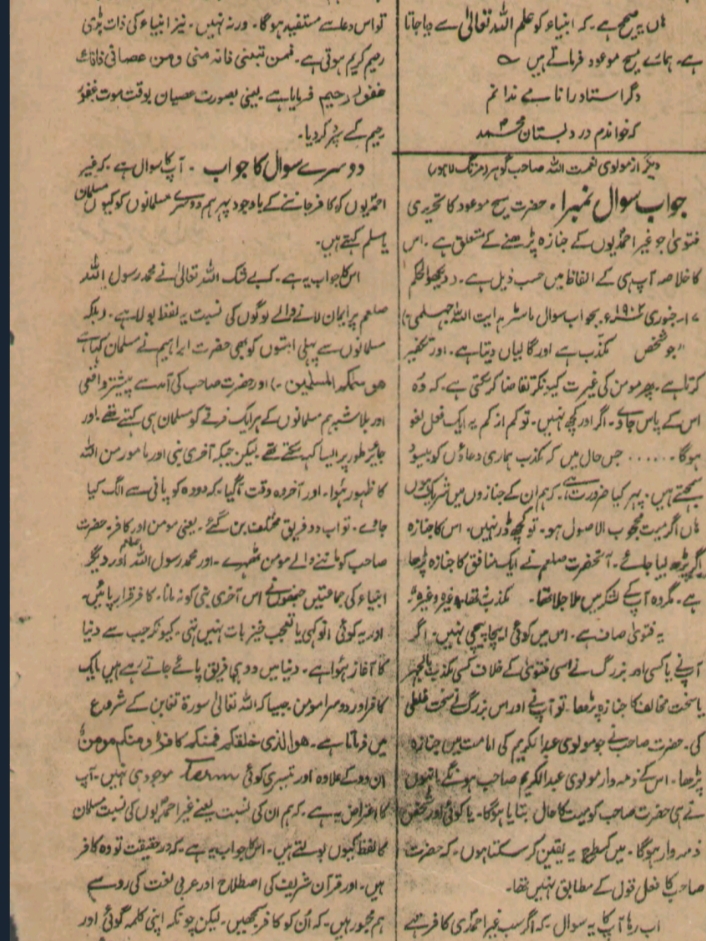 ہاں یہ صحیح ہے۔ کہ انبیاء کو علم اللہ تعالیٰ سے دیا جاتا
ہے۔ ہمارے مسیح موعود فرماتے ہیں ؎
دگر استاد را نامے ندانم
کہ خواندم در دبستان محمد
دیگر از مولوی نعمت اللہ صاحب گوہر (مزنگ لاہور)
جواب سوال نمبر۱۔ حضرت مسیح موعود کا تحریری
فتویٰ جو غیر احمدیوں کے جنازہ پڑھنے کے متعلق ہے۔ اس
کا خلاصہ آپ ہی کے الفاظ میں حسب ذیل ہے۔ (دیکھو الحکم
۱۷۔ جنوری ۱۹۰۲ء بجواب سوال ماسٹر ہدایت اللہ جہلمی)
"جو شخص مکذب ہے اور گالیاں دیتا ہے۔ اور تکفیر
کرتا ہے۔ پھر مومن کی غیرت کیونکر تقاضا کر سکتی ہے۔ کہ وہ
اس کے پاس جاوے۔ اگر اور کچھ نہیں۔ تو کم از کم یہ ایک فعل لغو
ہوگا۔ ...... جس حال میں کہ مکذب ہماری دعاؤں کو بیسود
سمجھتے ہیں۔ پھر کیا ضرورت ہے۔ کہ ہم ان کے جنازوں میں شریک ہوں
ہاں اگر میت محجوب الاصول ہو۔ تو کچھ ڈر نہیں۔ اس کا جنازہ
اگر پڑھ لیا جائے۔ آنحضرت صلعم نے ایک منافق کا جنازہ پڑھا
ہے۔ مگر وہ آپ کے لشکر میں ملا جلا تھا۔ مکذب نہ تھا۔ وغیرہ وغیرہ"
یہ فتویٰ صاف ہے۔ اس میں کوئی ایچا پیچی نہیں۔ اگر
آپنے یا کسی اور بزرگ نے اسی فتویٰ کے خلاف کسی مکذب
یا سخت مخالف کا جنازہ پڑھا۔ تو آپنے اور اس بزرگ نے سخت غلطی
کی۔ حضرت صاحب نے جو مولوی عبد الکریم کی امامت میں جنازہ
پڑھا۔ اس کے ذمہ دار مولوی عبد الکریم صاحب ہونگے۔ انہوں
نے ہی حضرت صاحب کو میت کا حال بتایا ہوگا۔ یا کوئی اور شخص
ذمہ دار ہوگا۔ میں کسطرح یہ یقین کر سکتا ہوں۔ کہ حضرت
صاحب کا فعل قول کے مطابق نہیں تھا۔
اب رہا آپ کا یہ سوال۔ کہ اگر سب غیر احمدی کافر ہے
تو اس دعا سے مستفید ہوگا۔ ورنہ نہیں۔ نیز انبیاء کی ذات بڑی
رحیم کریم ہوتی ہے۔ فمن تبعنی فانہ منی ومن عصانی فانک
غفور رحیم فرمایا ہے۔ یعنی بصورت عصیان بوقت موت غفور
رحیم کے سپرد کر دیا۔
دوسرے سوال کا جواب۔ آپ کا سوال ہے۔ کہ غیر
احمدیوں کو کافر جاننے کے باوجود پھر ہم دوسرے مسلمانوں کو کیوں مسلمان
یا مسلم کہتے ہیں۔
اس کا جواب یہ ہے۔ کہ بے شک اللہ تعالیٰ نے محمد رسول اللہ
صلعم پر ایمان لانے والے لوگوں کی نسبت یہ لفظ بولا ہے۔ (بلکہ
مسلمانوں سے پہلی امتوں کو بھی حضرت ابراہیم نے مسلمان کہا ہے
ھو سمٰکم المسلمین۔) اور حضرت صاحب کی آمد سے پیشتر واقعی
اور بلا شبہ ہم مسلمانوں کے ہر ایک فرقے کو مسلمان ہی کہتے تھے۔ اور
جائز طور پر ایسا کہہ سکتے تھے لیکن جبکہ آخری نبی اور مامور من اللہ
کا ظہور ہوا۔ اور آخر وہ وقت آگیا۔ کہ دودھ کو پانی سے الگ کیا
جاوے۔ تو اب دو فریق مختلف بن گئے۔ یعنی مومن اور کافر۔ حضرت
صاحب کو ماننے والے مومن ٹھہرے۔ اور محمد رسول اللہ صلعم اور دیگر
انبیاء کی جماعتیں جنھوں نے اس آخری نبی کو نہ مانا۔ کافر قرار پائیں۔
اور یہ کوئی انوکھی یا تعجب خیز بات نہیں تھی۔ کیونکہ جب سے دنیا
کا آغاز ہوا ہے۔ دنیا میں دو ہی فریق پائے جاتے رہے ہیں ایک
کافر اور دوسرا مومن جیسا کہ اللہ تعالیٰ سورۃ تغابن کے شروع
میں فرماتا ہے۔ ھو الذی خلقکم فمنکم کافر و منکم مومن
ان دو کے علاوہ اور تیسری کوئی Term موجود ہی نہیں۔ آپ
کا اعتراض یہ ہے۔ کہ ہم ان کی نسبت یعنے غیر احمدیوں کی نسبت مسلمان
کا لفظ کیوں بولتے ہیں۔ اس کا جواب یہ ہے۔ کہ در حقیقت تو وہ کافر
ہیں۔ اور قرآن شریف کی اصطلاح اور عربی لغت کی رو سے
ہم مجبور ہیں۔ کہ ان کو کافر سمجھیں۔ لیکن چونکہ اپنی کلمہ گوئی اور